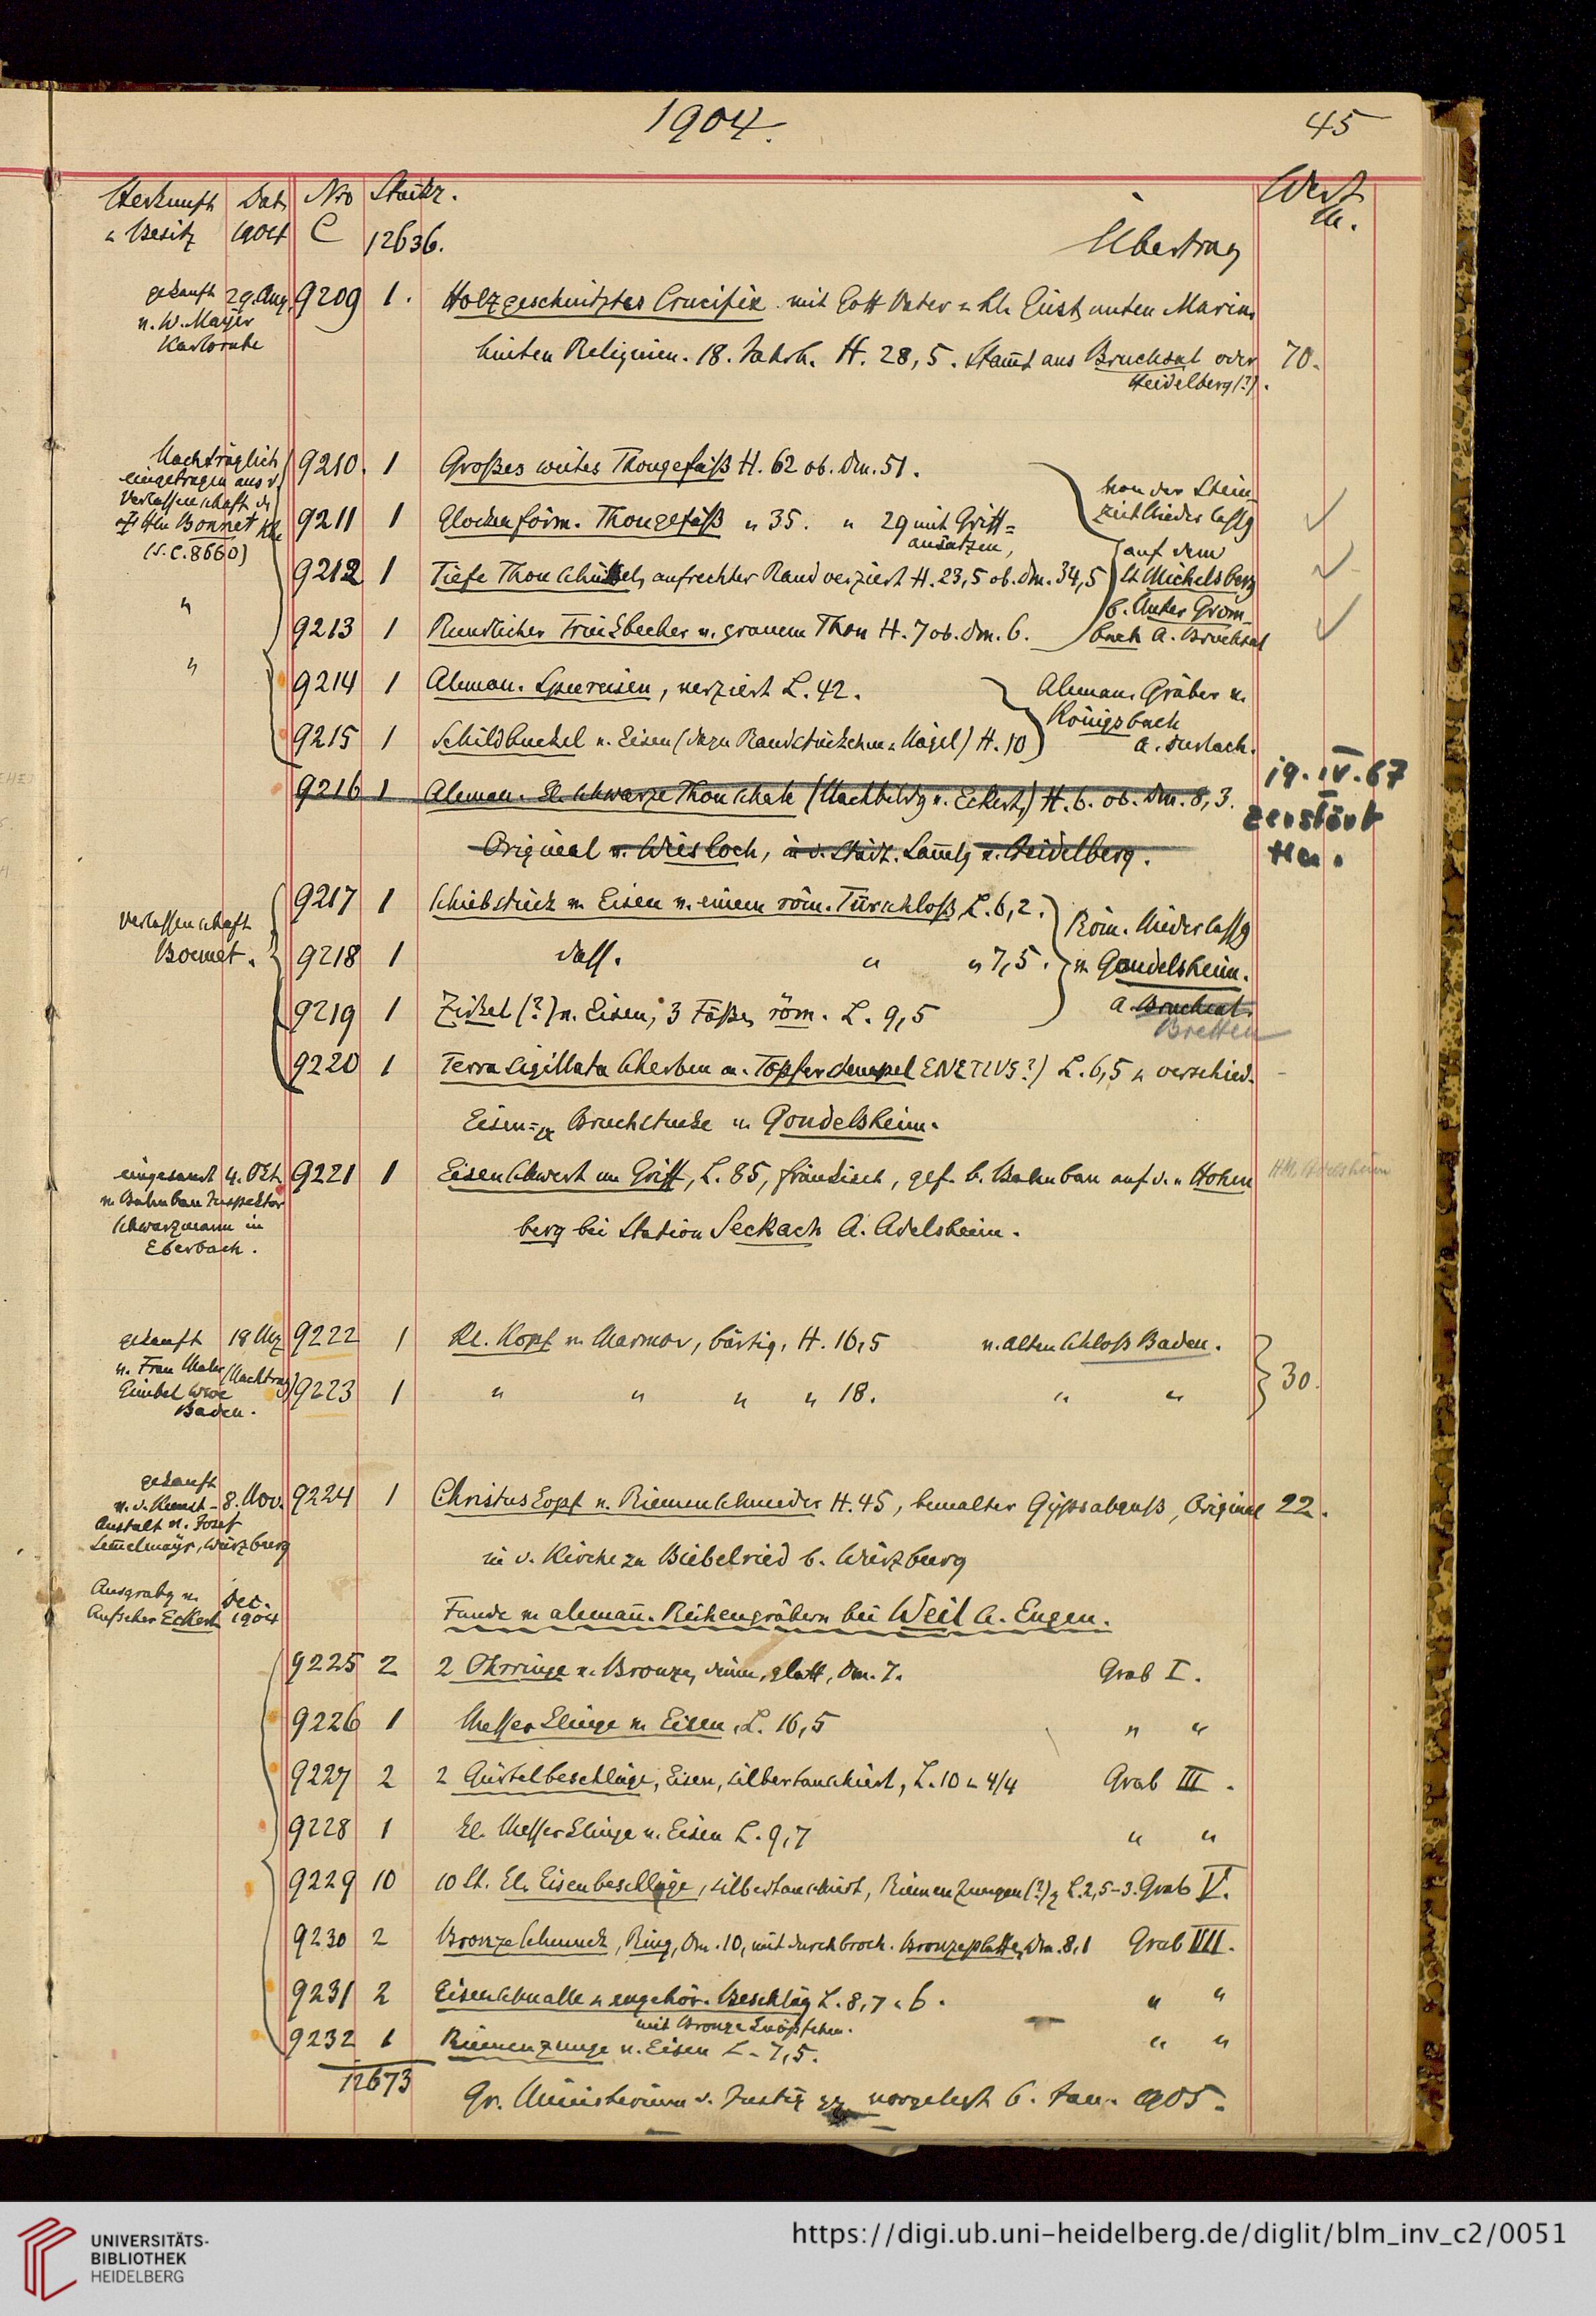 1904.
45
Herkunft u Besitz Dat. 1904 Nro C Stückz. 12636. Übertrag Wert M.
gekauft v. W. Mayer Karlsruhe 29. Aug. 9209 1. Holzgeschnitztes Crucifix mit Gott Vater u. hl. Geist, unten Maria,
hinten Reliquien. 18. Jahrh. H. 28,5. Stam̄t aus Bruchsal oder 70.
Heidelberg (?).
Nachträglich
eingetragen aus d.
Verlassenschaft d.
Bonnet
(s. C. 8660)
9210. 1 Großes weites Thongefäß H. 62 ob. Dm. 51.
9211 1 Glockenförm. Thongefäß " 35. " 29 mit Griff=
ansätzen,
9212 1 Tiefe Thonschüssel, aufrechter Rand verziert H. 23,5 ob. Dm. 34,5
" 9213 1 Rundlicher Trinkbecher v. grauem Thon H. 7 ob. Dm. 6.
von der Stein-
zeit Niederlassg
auf dem
Michelsberg
b. Unter Grom-
bach A. Bruchsal
" 9214 1 Aleman. Speereisen, verziert L. 42.
9215 1 Schildbuckel v. Eisen (dazu Randstückchen u. Nägel) H. 10
Aleman. Gräber v.
Königsbach
A. Durlach.
9216 1 Aleman. kl. schwarze Thonschale (Nachbildg v. Eckert,) H. 6. ob. Dm. 8,3.
Original v. Wiesloch, in d. städt. Sam̄lg z. Heidelberg.
19.IV.67
zerstört
Verlassenschaft
Bonnet.
9217 1 Schiebstück v. Eisen v. einem röm. Türschloß, L. 6,2.
9218 1 dass. " " 7,5.
9219 1 Zirkel (?) v. Eisen, 3 Füße, röm. L. 9,5
Röm. Niederlassg
v. Gondelsheim.
A. Bruchsal.
Bretten
9220 1 Terra sigillata Scherben m. Töpferstempel L. 6,5 u verschied.
Eisen= Bruchstücke v. Gondelsheim.
eingesandt
v. Bahnbau Inspektor
Schwarzmann in
Eberbach.
4. Okt. 9221 1 Eisenschwert m Griff, L. 85, fränkisch, gef. b. Bahnbau auf d. " Hohen
berg bei Station Seckach A. Adelsheim.
HM. Adelsheim
gekauft
v. Frau Maler
Gimbel Wwe
Baden.
(Nachtrag)
9222 1 Kl. Kopf v. Marmor, bärtig, H. 16,5 v. alten Schloß Baden.
9223 1 " " " " 18. " "
30.
gekauft
v. d. Kunst-
Anstalt v. Josef
Sem̄elmayr, Würzburg
8. Nov. 9224 1 Christuskopf v. Riemenschneider H. 45, bemalter Gypsabguß, Original 22.
in d. Kirche zu Biebelried b. Würzburg
Ausgrabg v.
Aufseher Eckert
Dec.
1904
Funde v. aleman̄. Reihengräbern bei Weil A. Engen.
9225 2 2 Ohrringe v. Bronze, dünn, glatt, Dm. 7. Grab I.
9226 1 Messerklinge v. Eisen, L. 16,5 " "
9227 2 2 Gürtelbeschläge, Eisen, silbertauschiert, L. 10 u 4/4 Grab III.
9228 1 kl. Messerklinge v. Eisen L. 9,7 " "
9229 10 10 St. kl. Eisenbeschläge, silbertauschiert, Riemenzungen (?) L. 2,5–3. Grab V.
9230 2 Bronzeschmuck, Ring, Dm. 10, mit durchbroch. Bronzeplatte, Dm. 8,1 Grab VII.
9231 2 Eisenschnalle u zugehör. Beschläg L. 8,7 u 6. " "
mit Bronzeknöpfchen.
9232 1 Riemenzunge v. Eisen L. 7,5. " "
12673
Gr. Ministerium d. Justiz vorgelegt 6. Jan. 1905.
UNIVERSITÄTS-
BIBLIOTHEK
HEIDELBERG
https://digi.ub.uni-heidelberg.de/diglit/blm_inv_c2/0051